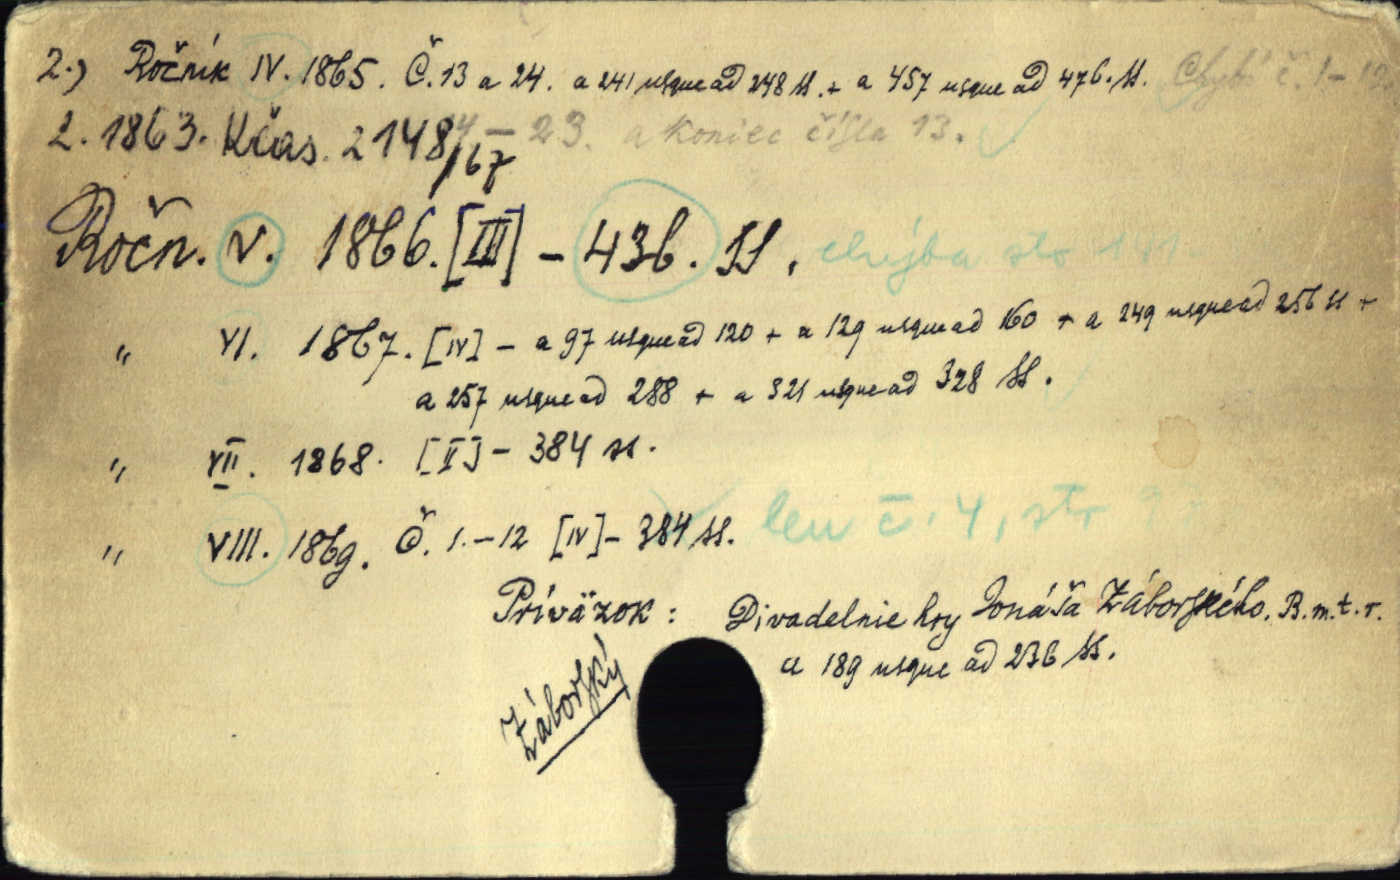 2.) Ročník IV. 1865. Č. 13 a 24. a 241 usque ad 248 ss. + a 457 usque ad 476. ss. Chybí č. 1-12
2. 1863. Kčas. 2148/67 4-23. a koniec čísla 13.
Ročn. V. 1866. [III] - 436. SS. chýba str 191.
" VI. 1867. [IV] - a 97 usque ad 120 + a 129 usque ad 160 + a 249 usque ad 256 ss +
a 257 usque ad 288 + a 321 usque ad 328 ss.
" VII. 1868. [II] - 384 ss.
" VIII. 1869. Č. 1.-12 [IV] - 384 ss. len č. 4, str 97
Príväzok: Divadelnie hry Jonáša Záborského. B.m.t.r.
a 189 usque ad 236 ss.
Záborský